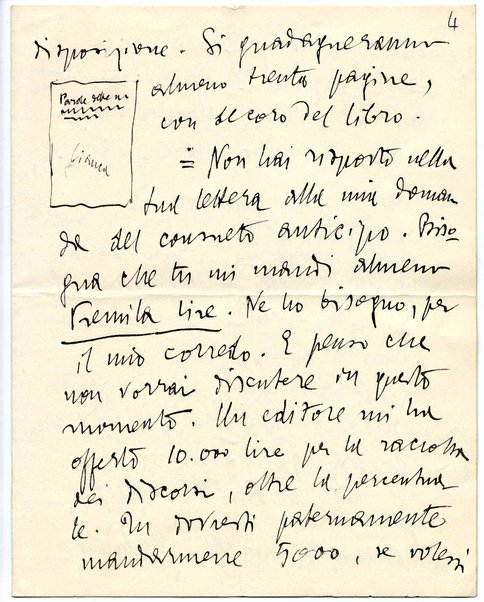 4
disposizione. Si guadagneranno
almeno trenta pagine,
con decoro del libro.
Parole dette in
bianca
= Non hai risposto nella
tua lettera alla mia doman
da del consueto anticipo. Biso-
gna che tu mi mandi almeno
tremila lire. Ne ho bisogno, per
il mio corredo. E penso che
non vorrai discutere in questo
momento. Un editore mi ha
offerto 10.000 lire per la raccolta
dei discorsi, oltre la percentua
le. Tu dovresti paternamente
mandarmene 5000, se volessi